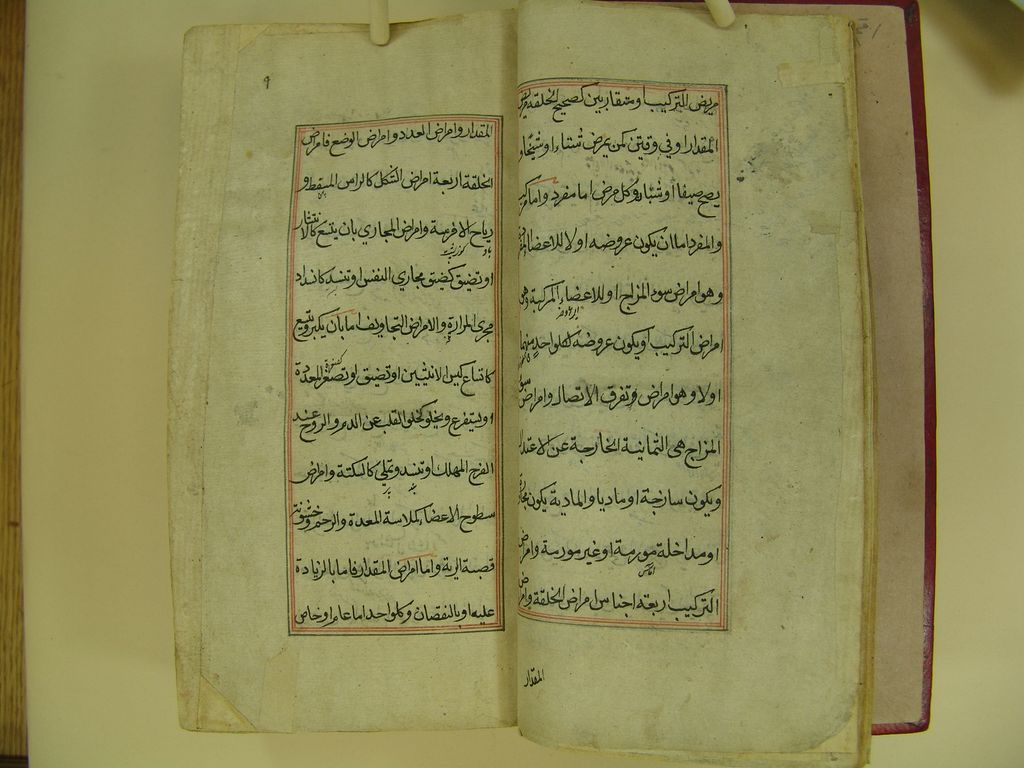 مريض التركيب او متقاربين كصحيح الخلقة مريض
المقدار او في وقتين كمن يمرض شتاء او شيخا و
يصح صيفا او شبابا وكل مرض اما مفرد واما مركب
والمفرد اما ان يكون عروضه اولا للاعضاء المفردة
وهو امراض سوء المزاج او للاعضاء المركبة وهي
امراض التركيب او يكون عروضه لكلواحد منهما
اولا وهو امراض تفرق الاتصال وامراض سوء
المزاج هي الثمانية الخارجة عن الاعتدال
ويكون ساذجة او ماديا والمادية يكون مجاورة
او مداخلة مورمة او غير مورمة وامراض
اماس
التركيب اربعة اجناس امراض الخلقة وامراض
المقدار
٩
المقدار وامراض العدد وامراض الوضع فامراض
الخلقة اربعة امراض الشكل كالراس المسقط و
رياح الافرسة وامراض المجاري بان يتسع كالانتشار
او تضيق كضيق مجاري النفس او تنسد كانسداد
مجرى المرارة والامراض التجاويف اما بان يكبر ويتسع
كاتساع كيس الانثيين او تضيق او تصغر المعدة
او يستفرغ ويخلو كخلو القلب عن الدم والروح عند
الفرح المهلك او تنسد وتمتلي كالسكتة وامراض
سطوح الاعضاء كملاسة المعدة والرحم وخشونة
قصبة الرية واما امراض المقدار فاما بالزيادة
عليه او بالنقصان وكلواحد اما عام او خاص